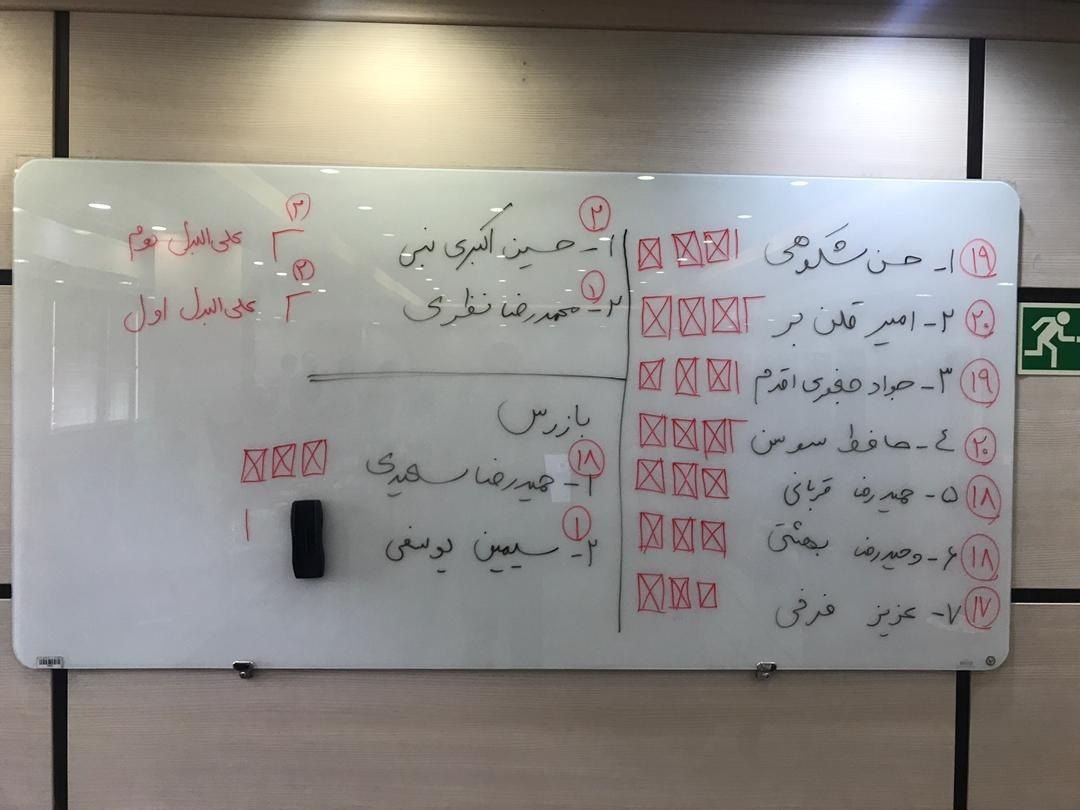 ۱۹ ۱- حسن شکوهی
۲۰ ۲- امیر قلن بر
۱۹ ۳- جواد جعفری اقدم
۲۰ ٤- حافظ سوسن
۱۸ ۵- حمیدرضا قربانی
۱۸ ۶- وحیدرضا بهشتی
۱۷ ۷- عزیز فرقی
۲
۱- حسین اکبری نبی
۱
۲- محمدرضا نظری
۲
علی البدل دوم
۲
علی البدل اول
بازرس
۱۸
۱- حمیدرضا سعیدی
۱
۲- سیمین یوسفی